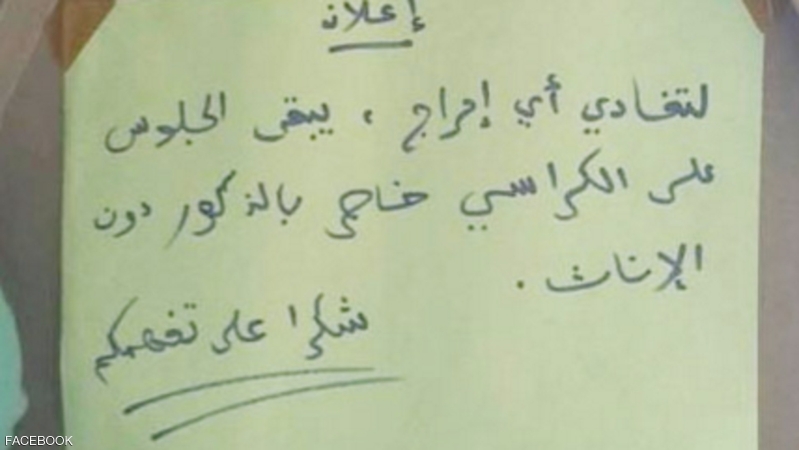 إعلان
لتفادي أي إحراج ، يبقى الجلوس
على الكراسي خاص بالذكور دون
الإناث .
شكرا على تفهمكم
FACEBOOK